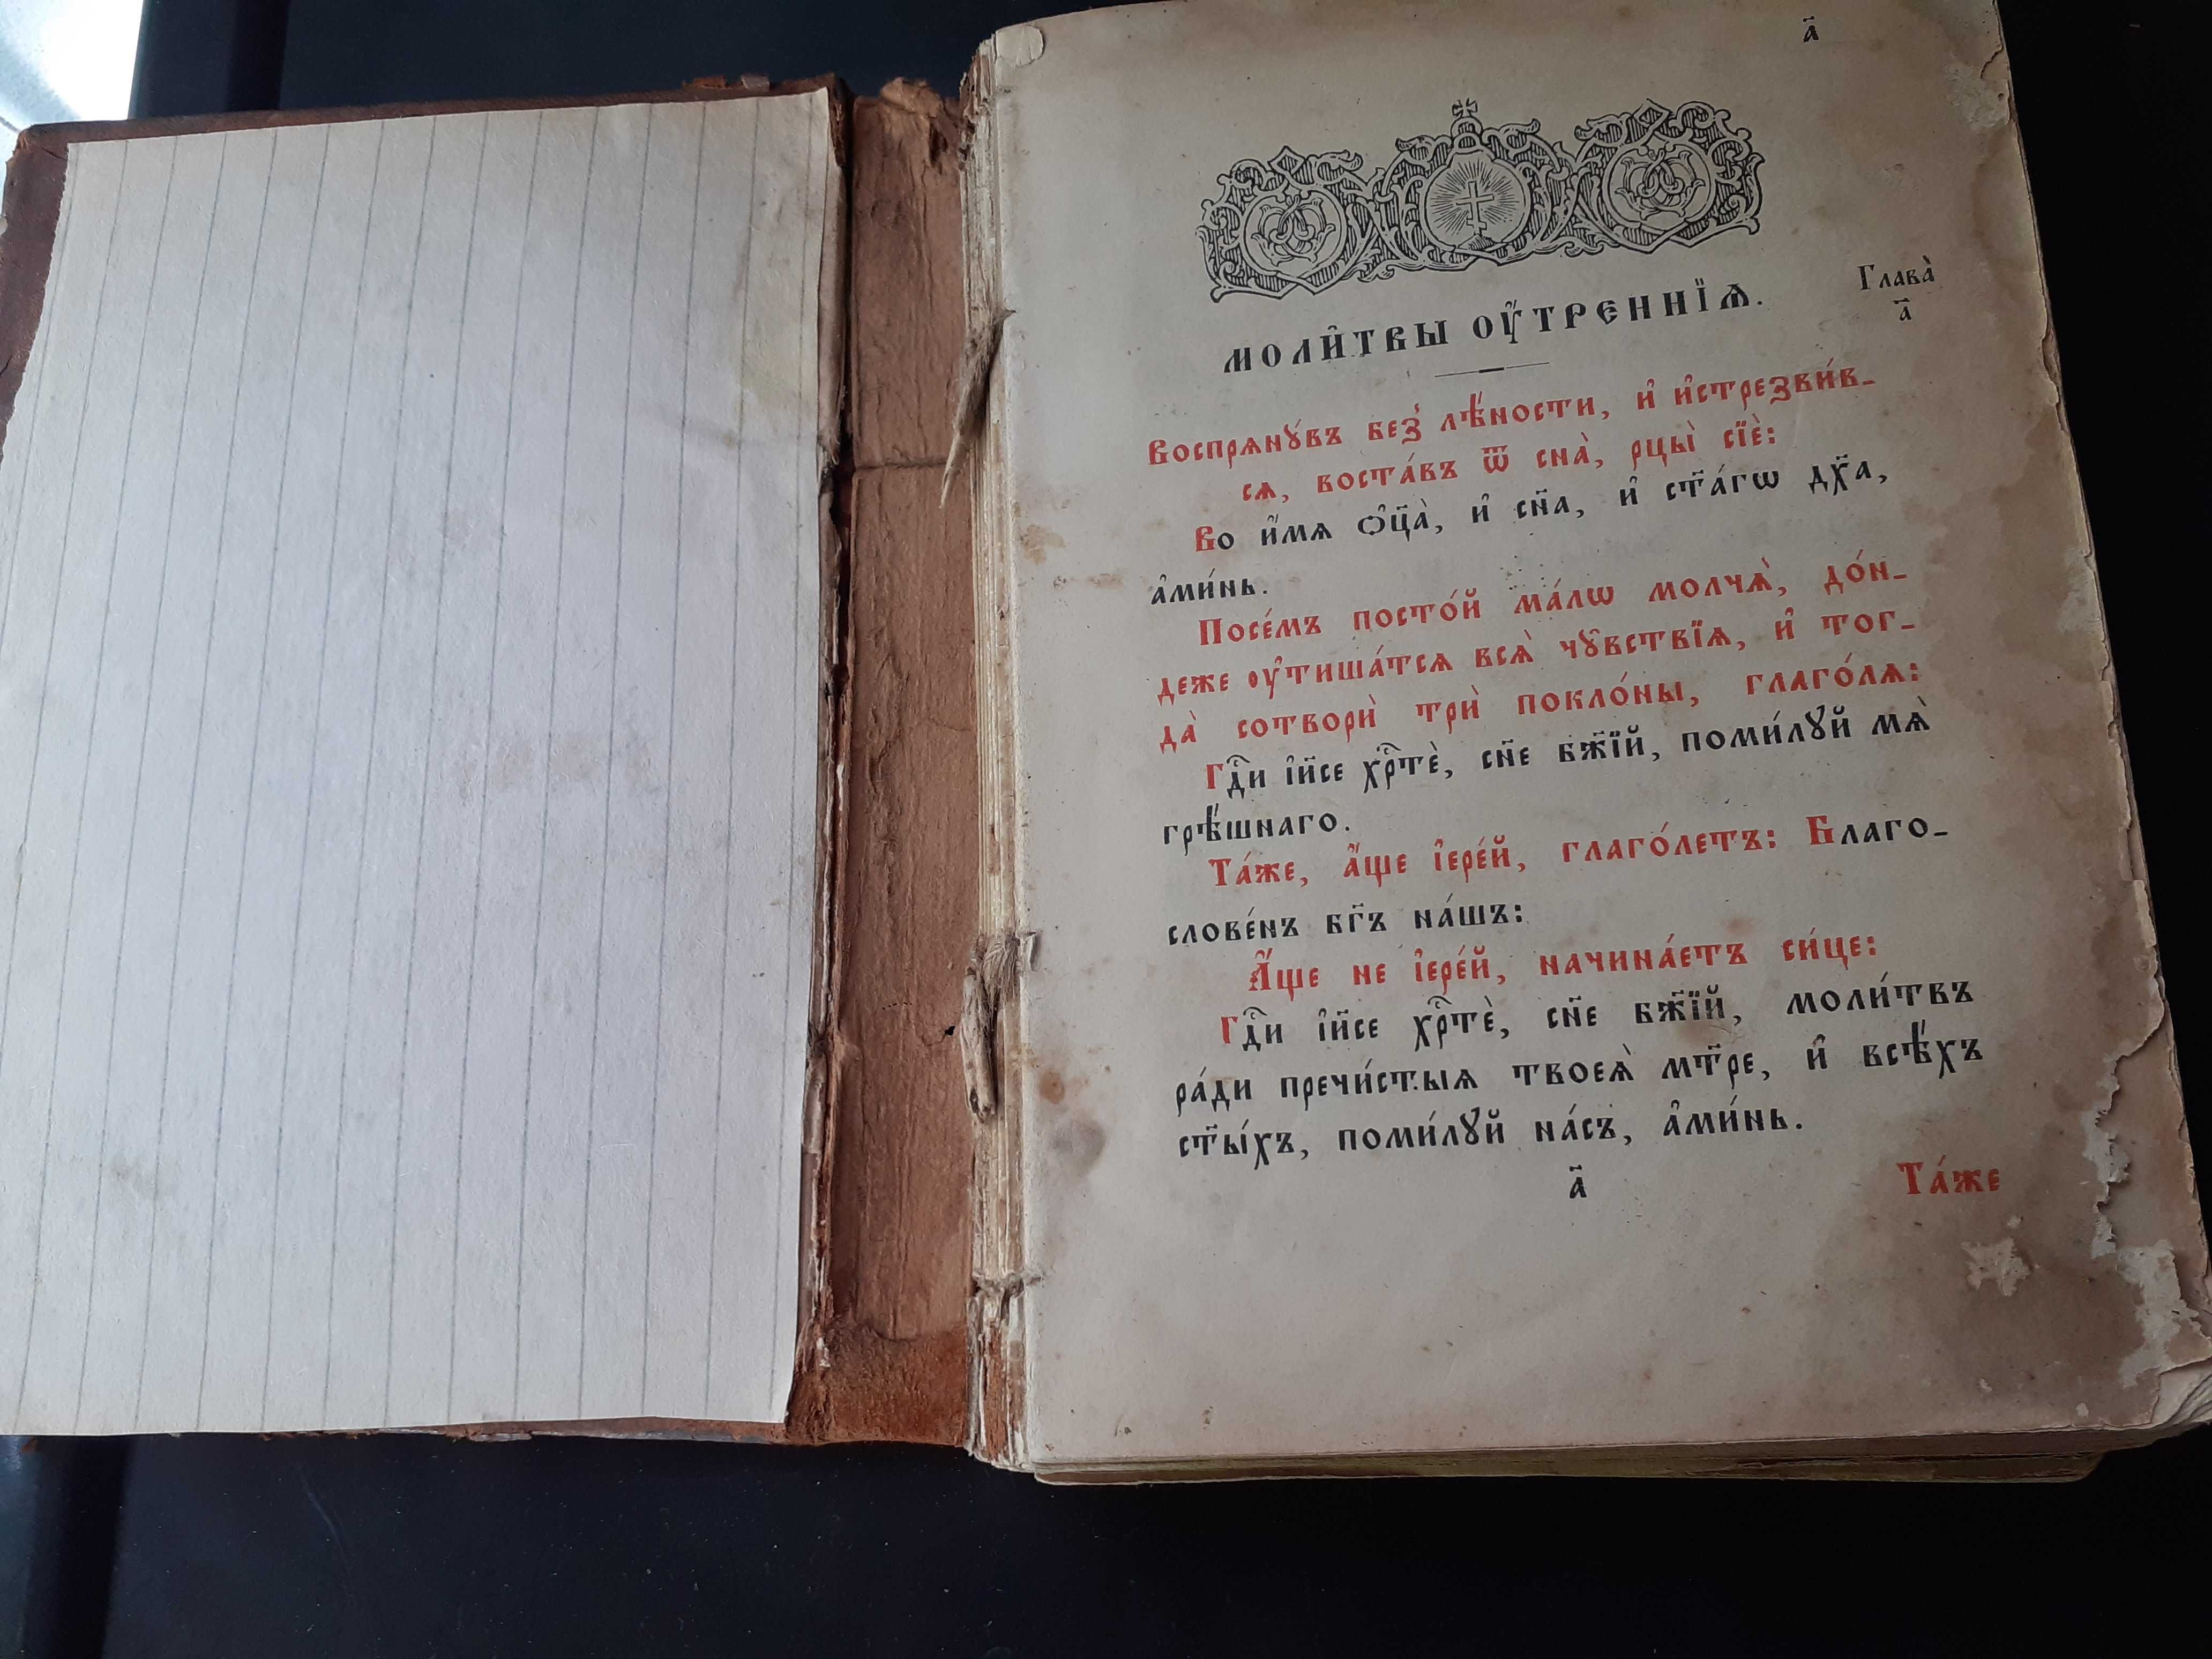 а҃
Глава̀
а҃
МОЛИ̑ТВЫ ОУ҆́ТРЕННЇѦ.
Воспрѧнꙋ́въ без̾ лѣ́ности, и҆ и҆стрезви́в-
сѧ, воста́въ ѿ сна̀, рцы̀ сїѐ:
Во и҆́мѧ ѻ҆ц҃а̀, и҆ сн҃а, и҆ ст҃а́гѡ дх҃а,
а҆ми́нь.
Посе́мъ посто́й ма́лѡ молчѧ̀, до́н-
деже оу҆тиша́тсѧ всѧ̀ чꙋ̑вствїѧ, и҆ тог-
да̀ сотворѝ трѝ покло́ны, глаго́лѧ:
Гдⷭ҇и і҆и҃се хрⷭ҇тѐ, сн҃е бж҃їй, поми́лꙋй мѧ̀
грѣ́шнаго.
Та́же, а҆́ще і҆ере́й, глаго́летъ: Благо-
слове́нъ бг҃ъ на́шъ:
А҆́ще не і҆ере́й, начина́етъ си́це:
Гдⷭ҇и і҆и҃се хрⷭ҇тѐ, сн҃е бж҃їй, моли́твъ
ра́ди пречи́стыѧ твоеѧ̀ мт҃ре, и҆ всѣ́хъ
ст҃ы́хъ, поми́лꙋй на́съ, а҆ми́нь.
а҃
Та́же